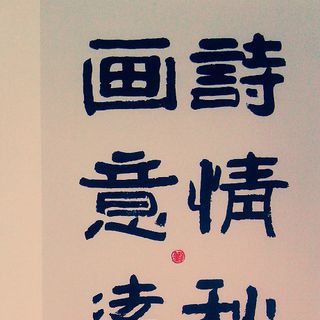 詩情秋
画意遠